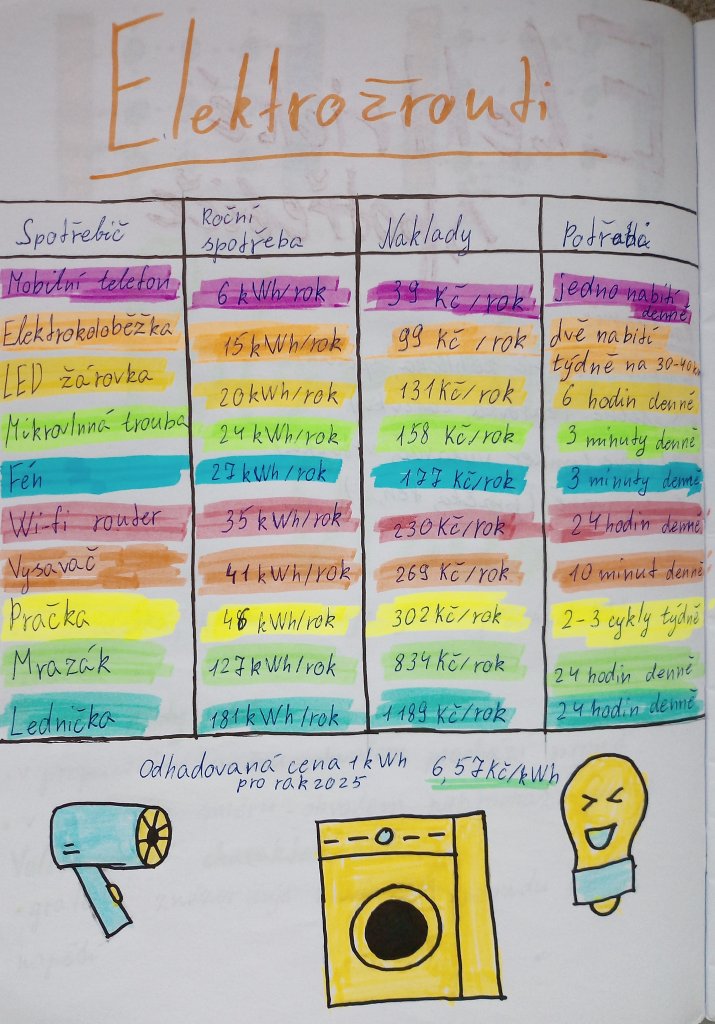 Elektrožrouti
Spotřebič Roční spotřeba Naklady Potřeba
Mobilní telefon 6 kWh/rok 39 Kč/rok jedno nabití denně
Elektrokoloběžka 15 kWh/rok 99 Kč/rok dvě nabití týdně na 30-40km
LED žárovka 20 kWh/rok 131 Kč/rok 6 hodin denně
Mikrovlnná trouba 24 kWh/rok 158 Kč/rok 3 minuty denně
Fén 27 kWh/rok 177 Kč/rok 3 minuty denně
Wi-fi router 35 kWh/rok 230 Kč/rok 24 hodin denně
Vysavač 41 kWh/rok 269 Kč/rok 10 minut denně
Pračka 46 kWh/rok 302 Kč/rok 2-3 cykly týdně
Mrazák 127 kWh/rok 834 Kč/rok 24 hodin denně
Lednička 181 kWh/rok 1189 Kč/rok 24 hodin denně
Odhadovaná cena 1 kWh 6,57 Kč/kWh
pro rak 2025